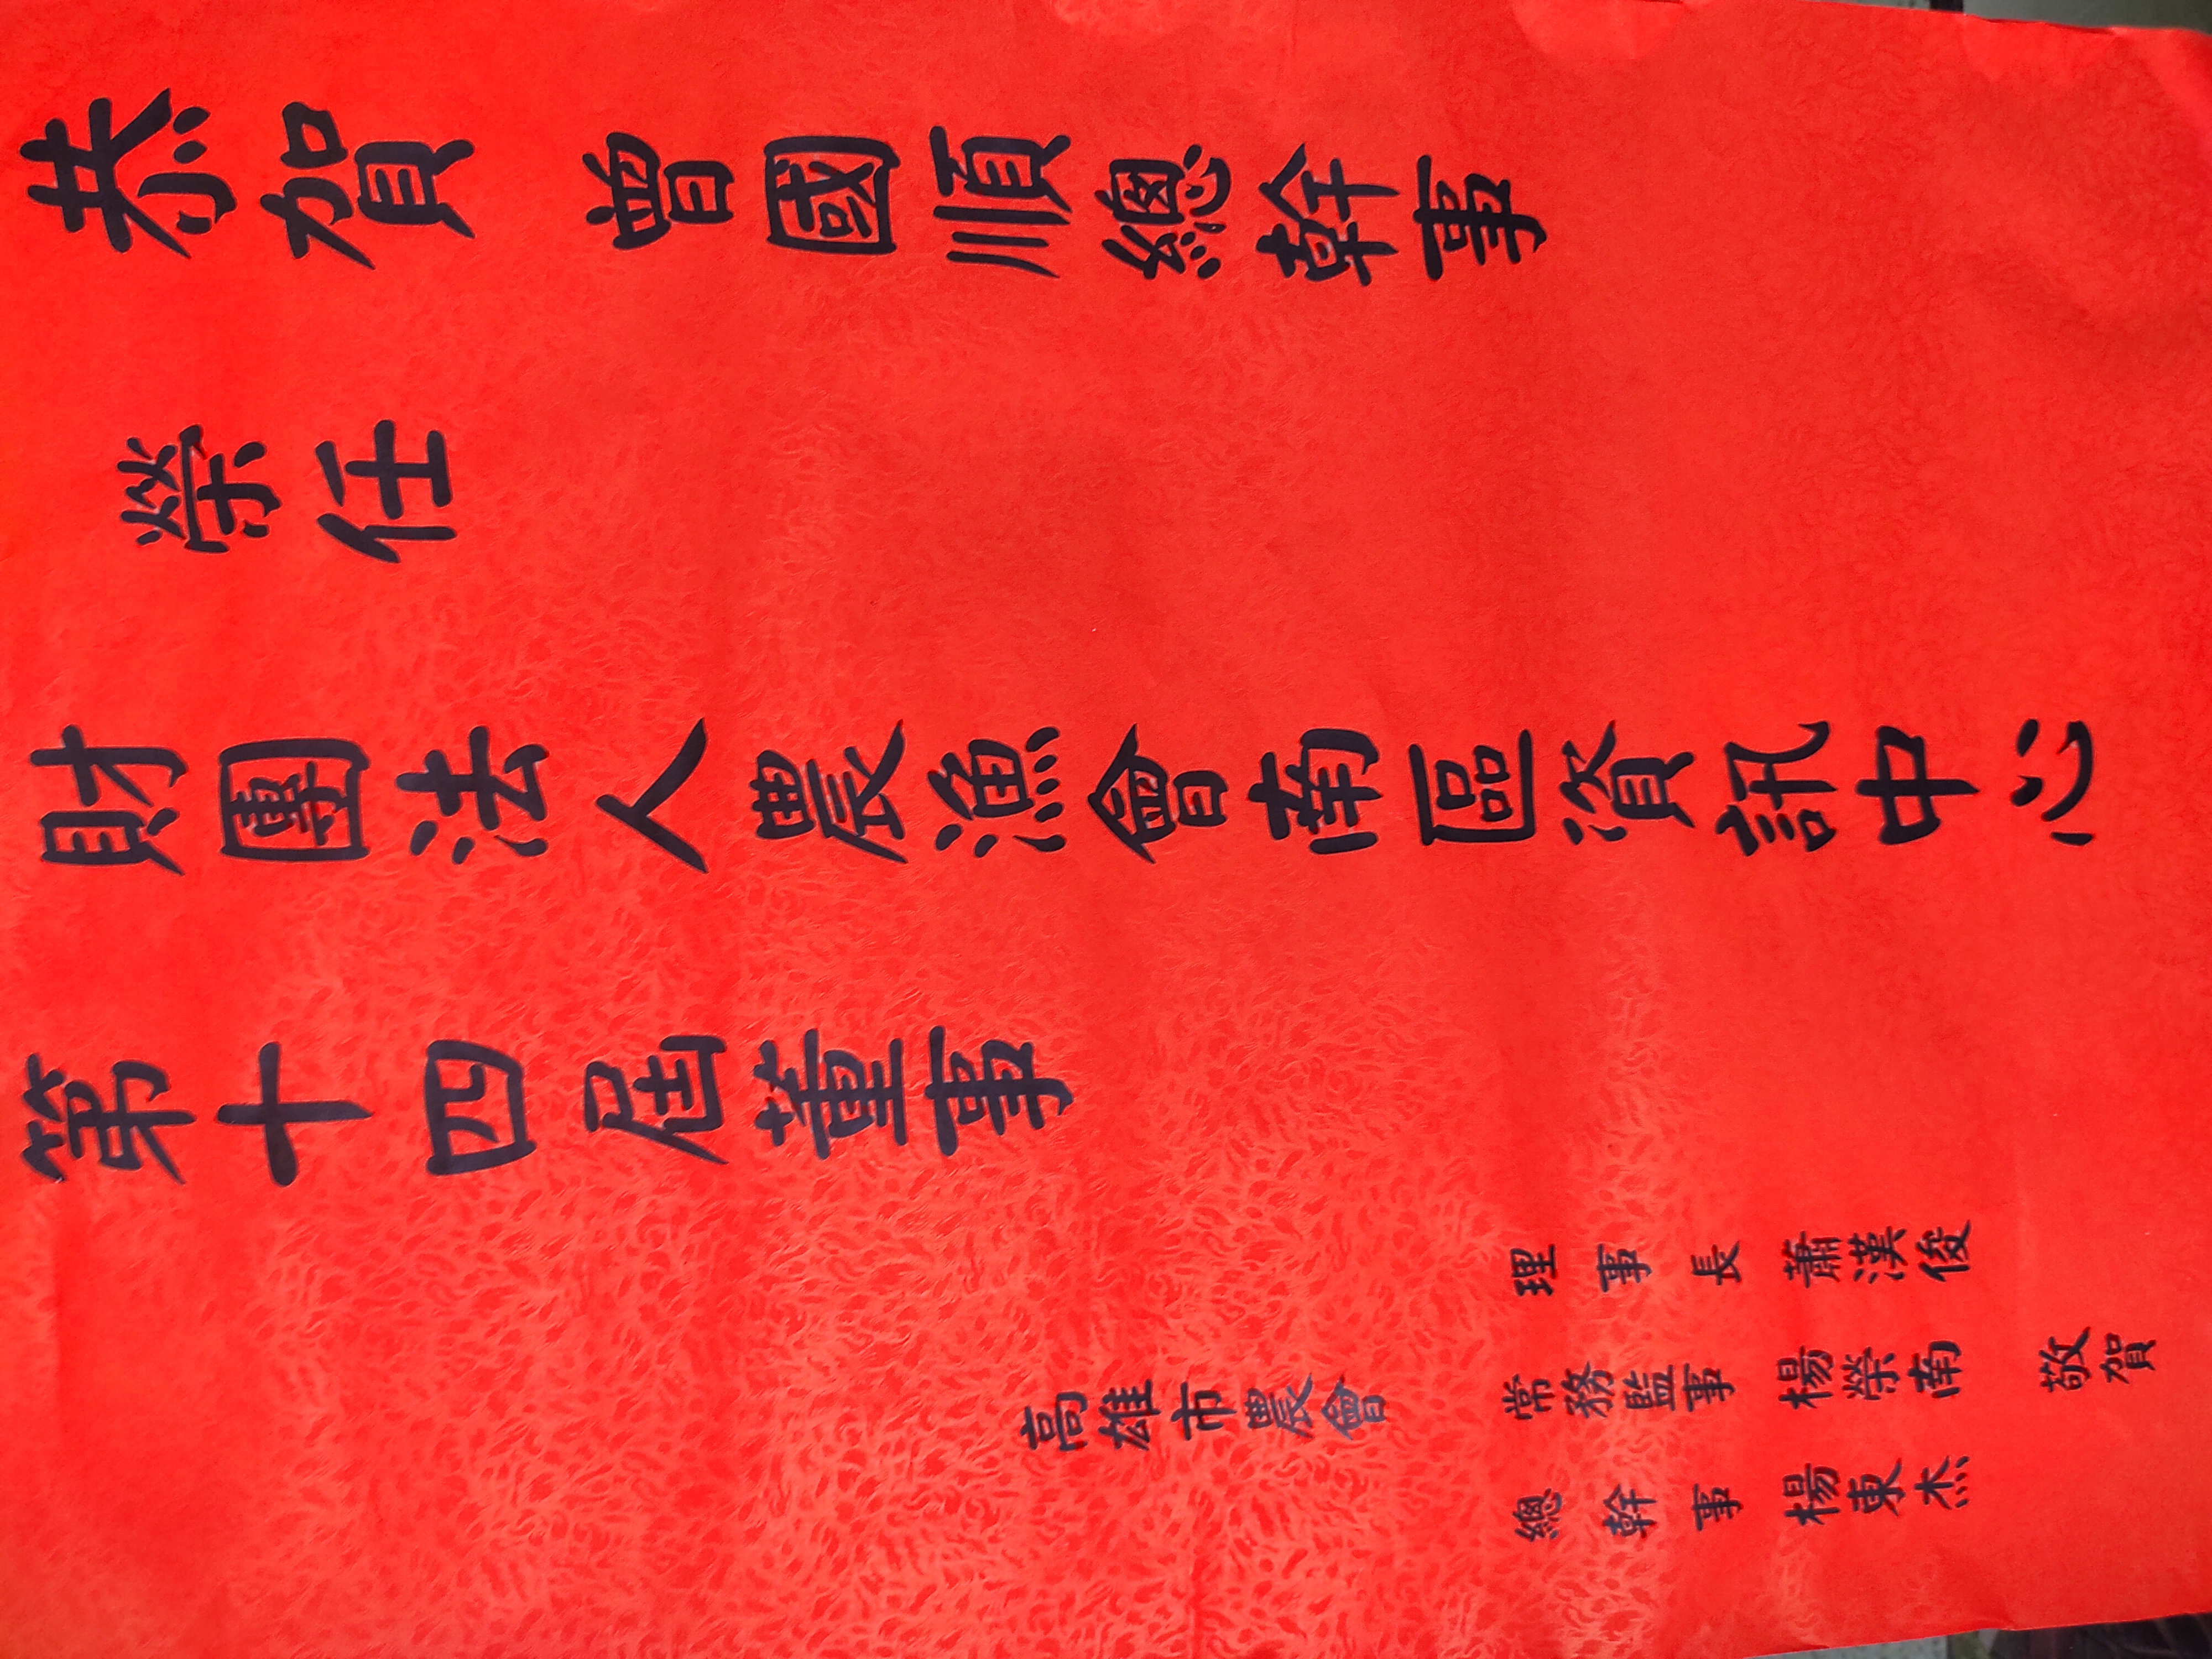 恭賀 曾國順總幹事
榮任
財團法人農漁會南區資訊中心
第十四屆董事
高雄市農會
理事長 蕭漢俊
常務監事 楊榮南
總幹事 楊東杰
敬賀